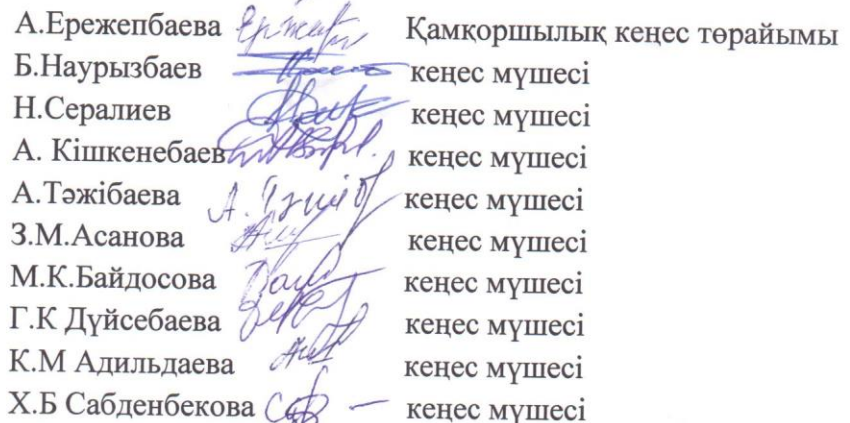 А.Ережепбаева Қамқоршылық кеңес төрайымы
Б.Наурызбаев кеңес мүшесі
Н.Сералиев кеңес мүшесі
А. Кішкенебаев кеңес мүшесі
А.Тәжібаева кеңес мүшесі
З.М.Асанова кеңес мүшесі
М.К.Байдосова кеңес мүшесі
Г.К Дүйсебаева кеңес мүшесі
К.М Адильдаева кеңес мүшесі
Х.Б Сабденбекова кеңес мүшесі